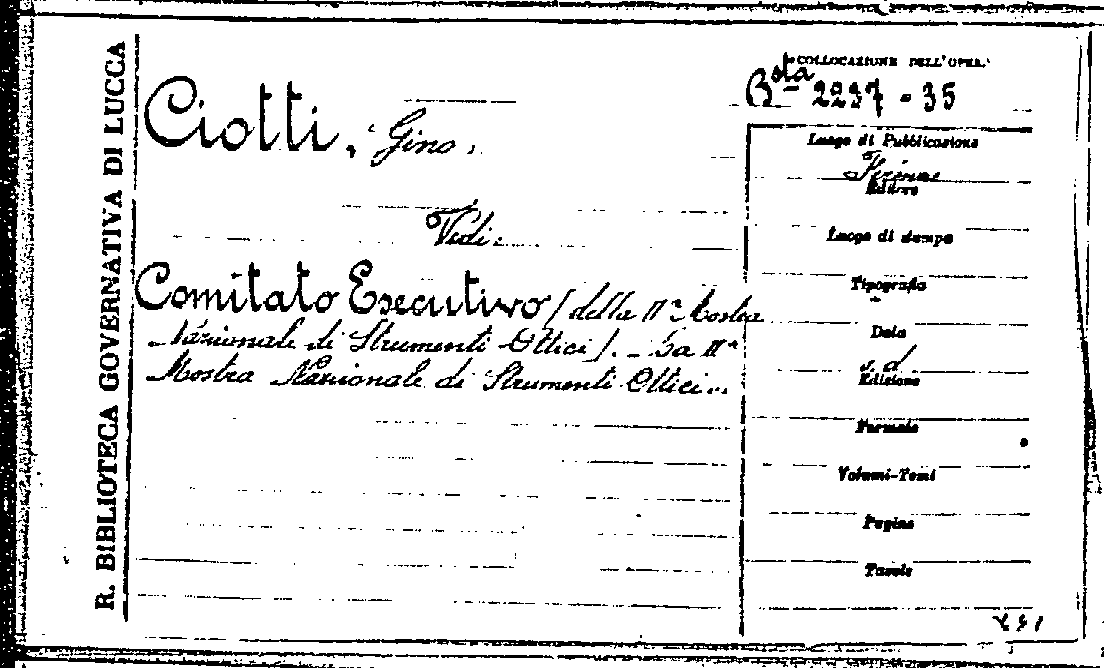 R. BIBLIOTECA GOVERNATIVA DI LUCCA
Ciotti, Gino.
Vedi:
Comitato Esecutivo (della IIª Mostra
Nazionale di Strumenti Ottici). - La IIª
Mostra Nazionale di Strumenti Ottici...
COLLOCAZIONE DELL'OPERA
Bsta 2237 - 35
Luogo di Pubblicazione
Firenze
Editore
Luogo di stampa
Tipografia
Data
s. d.
Edizione
Formato
Volumi-Tomi
Pagine
Tavole